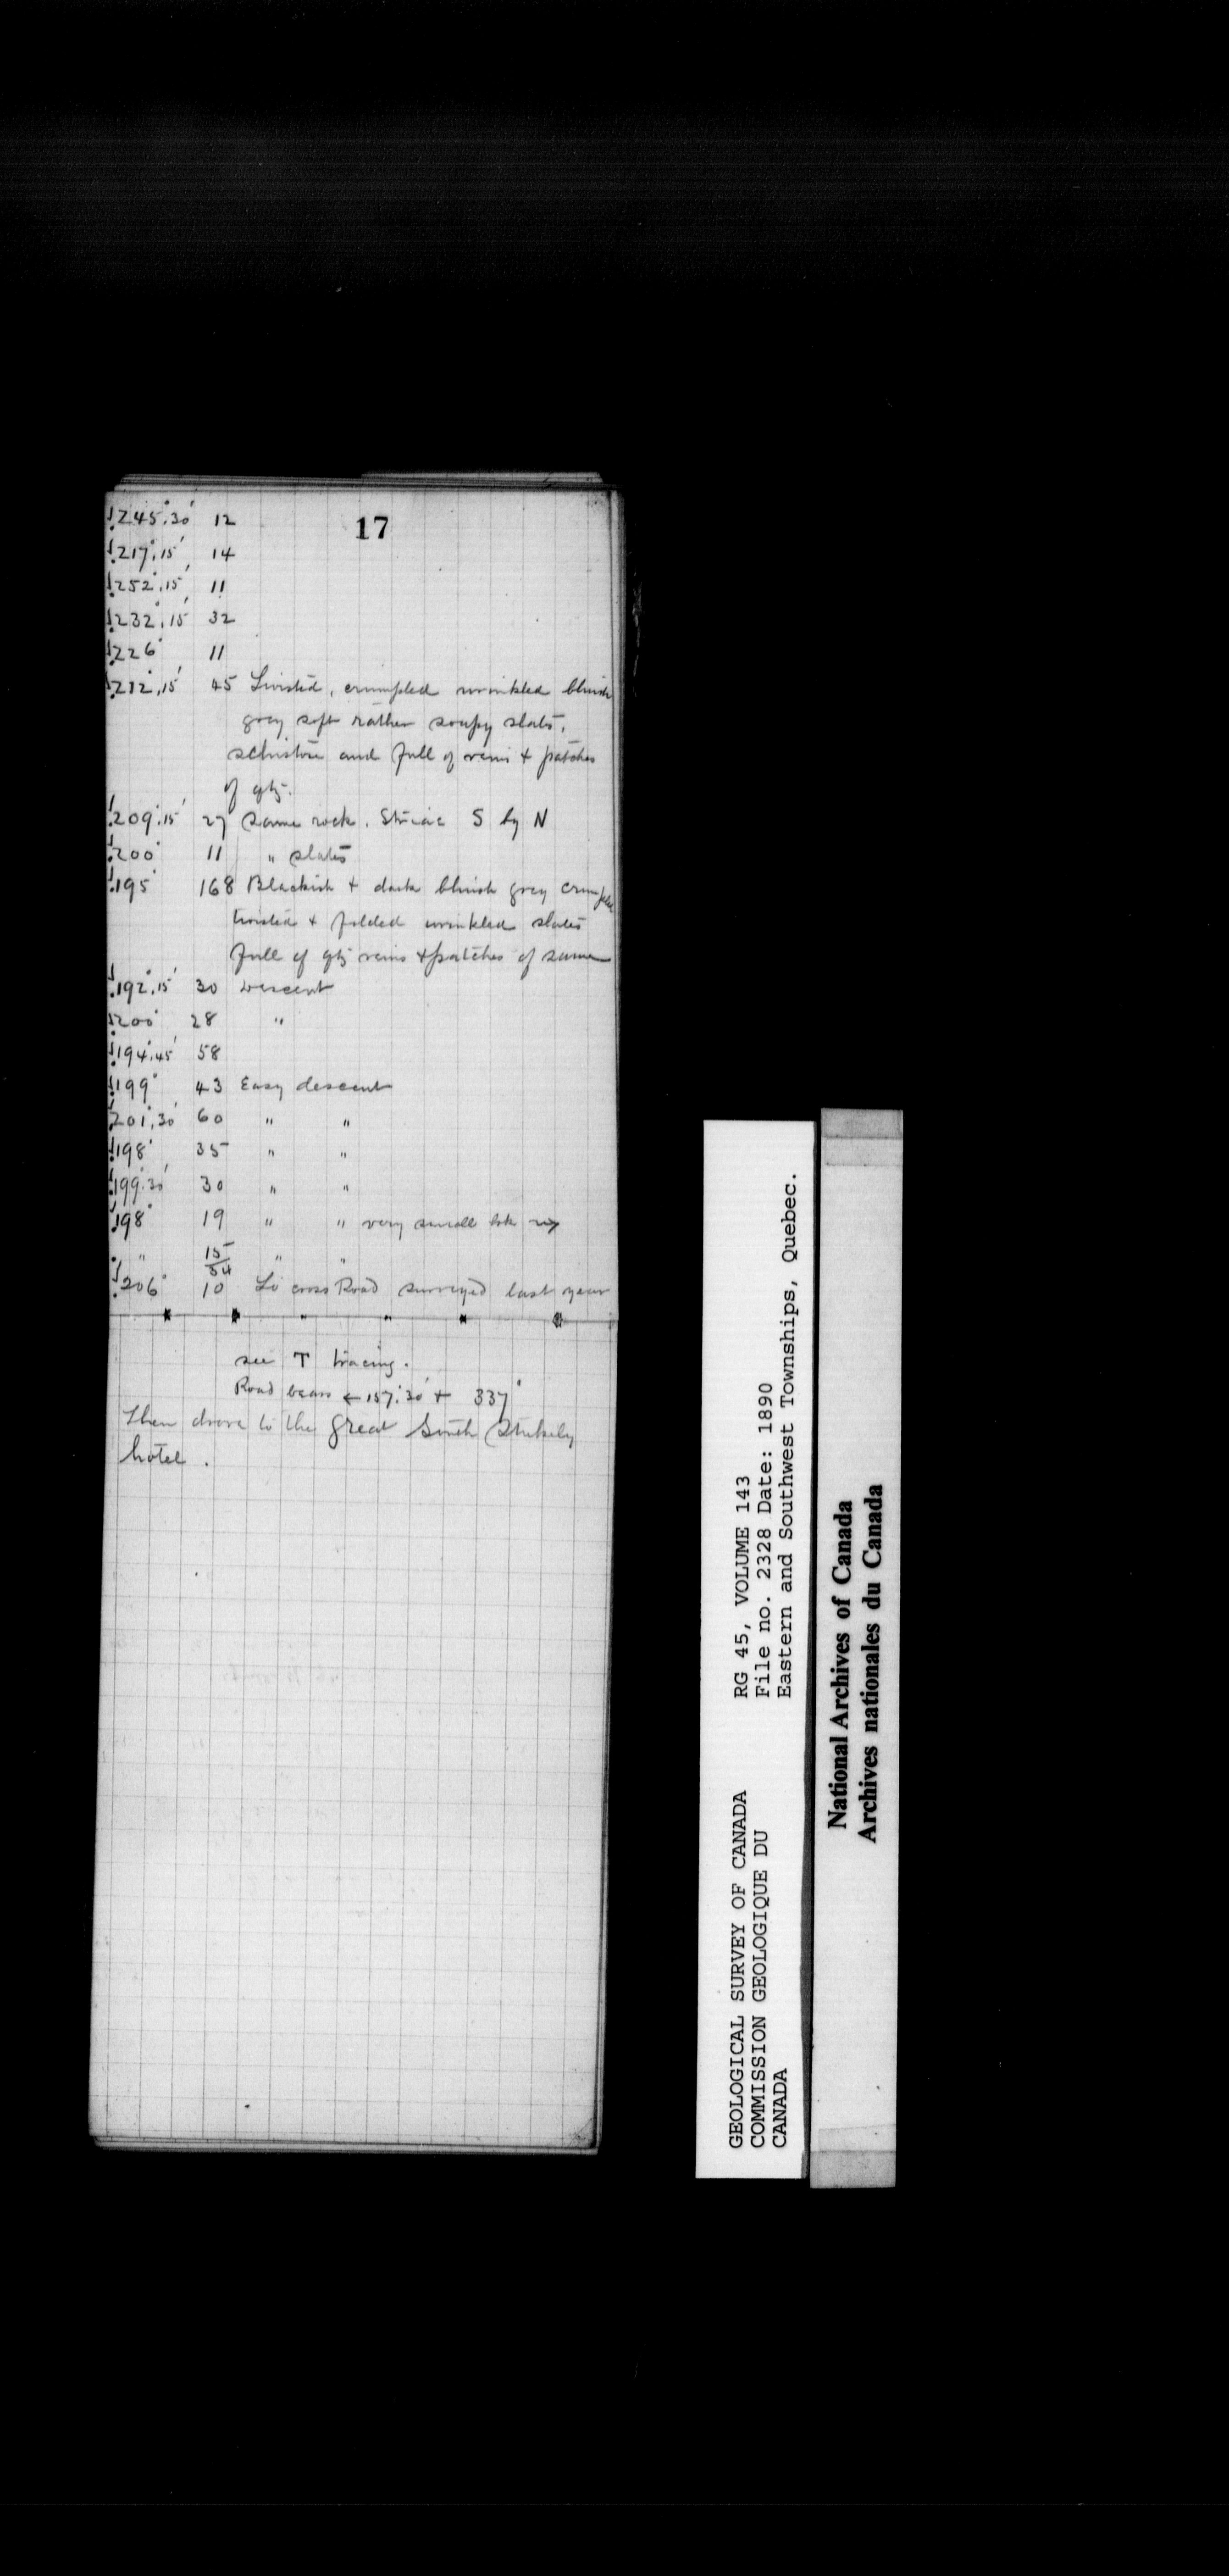 17
245°.30' 12
217°.15' 14
252°.15' 11
232°.15' 32
226° 11
212°.15' 45 Twisted, crumpled wrinkled bluish
grey soft rather soapy slates,
schistose and full of veins + patches
of qtz.
209°.15' 27 Same rock. Striae S by N
200° 11 " slates
195° 168 Blackish + dark bluish grey crumpled
twisted + folded wrinkled slates
full of qtz veins + patches of same
192°.15' 30 Descent
200° 28 "
194°.45' 58
199° 43 Easy descent
201°.30' 60 " "
198° 35 " "
199°.30' 30 " "
198° 19 " " very small
" 15 " "
34
206° 10 To cross Road surveyed last year
see T tracing.
Road bears ← 157°.30' + 337°
Then drove to the great South Stukely
hotel.
GEOLOGICAL SURVEY OF CANADA
COMMISSION GEOLOGIQUE DU
CANADA
RG 45, VOLUME 143
File no. 2328 Date: 1890
Eastern and Southwest Townships, Quebec.
National Archives of Canada
Archives nationales du Canada